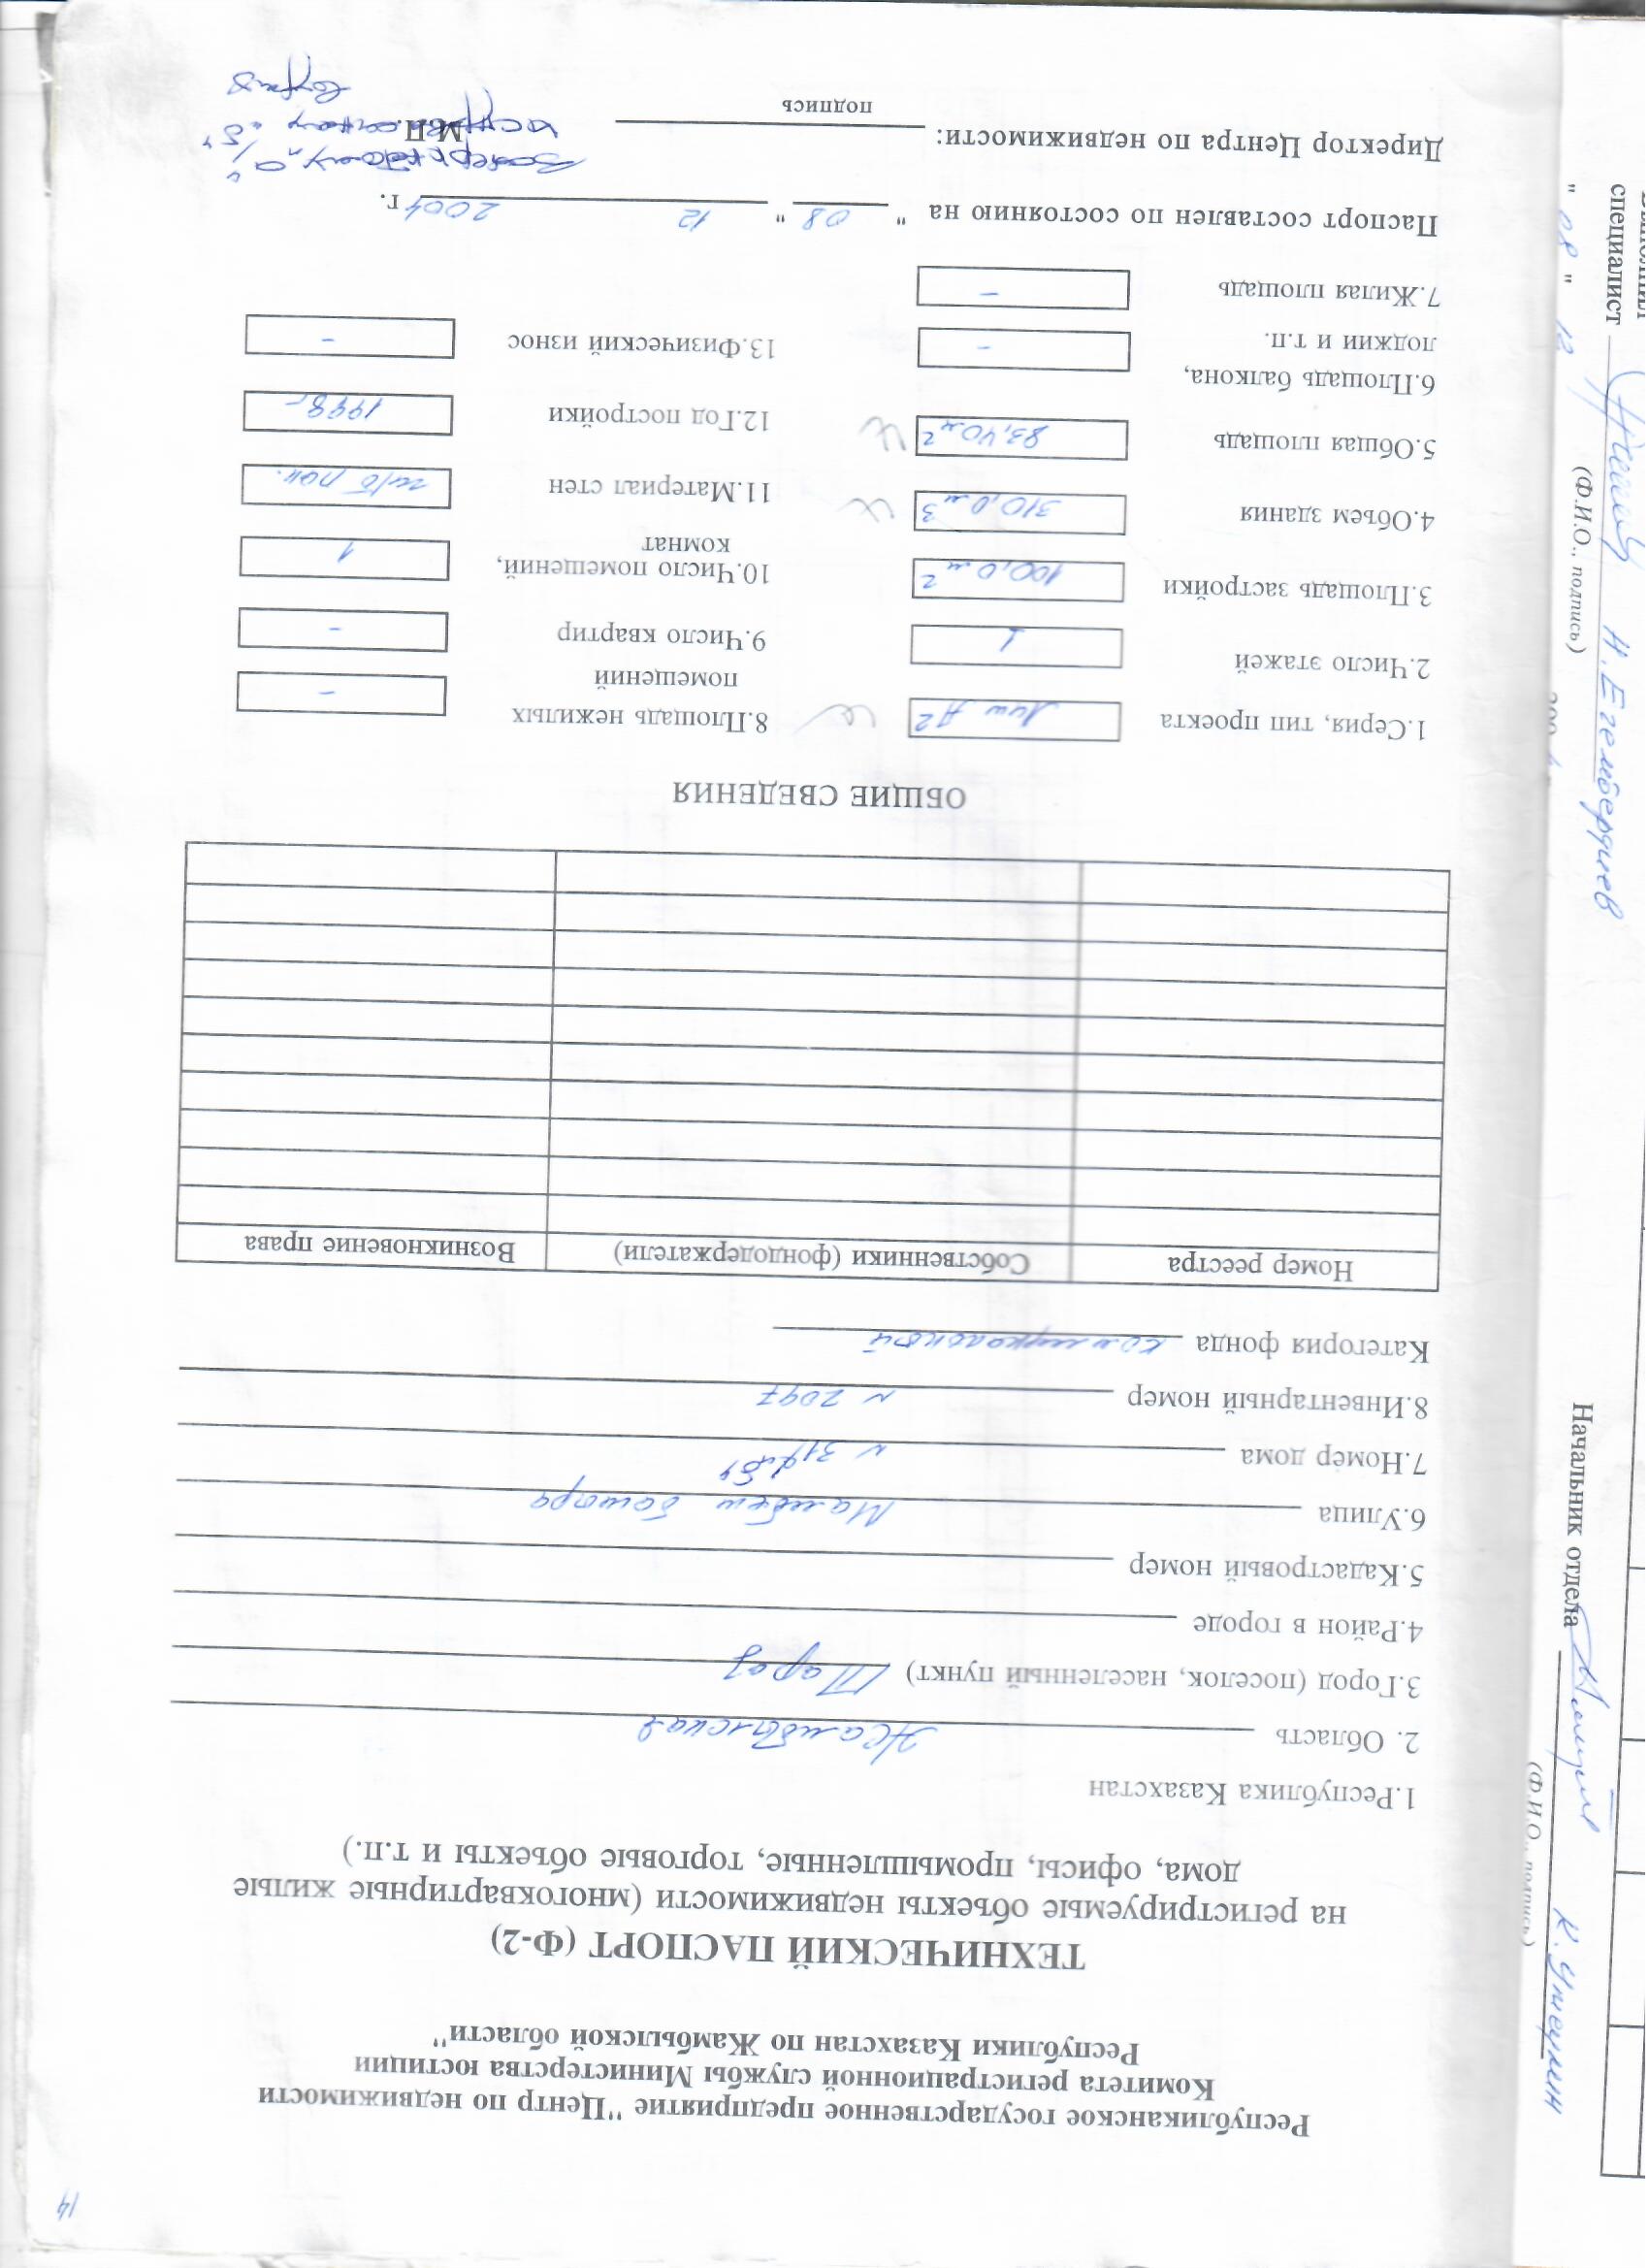 14
Республиканское государственное предприятие "Центр по недвижимости
Комитета регистрационной службы Министерства юстиции
Республики Казахстан по Жамбылской области"
ТЕХНИЧЕСКИЙ ПАСПОРТ (Ф-2)
на регистрируемые объекты недвижимости (многоквартирные жилые
дома, офисы, промышленные, торговые объекты и т.п.)
1.Республика Казахстан
2. Область Жамбылская
3.Город (поселок, населенный пункт) Тараз
4.Район в городе
5.Кадастровый номер
6.Улица Мамбет батыра
7.Номер дома
8.Инвентарный номер N 2097
Категория фонда коммунальный
Номер реестра Собственники (фондодержатели) Возникновение права
ОБЩИЕ СВЕДЕНИЯ
1.Серия, тип проекта Лит А2
2.Число этажей 1
3.Площадь застройки 100,0 м2
4.Объем здания 310,0 м3
5.Общая площадь 83,40 м2
6.Площадь балкона,
лоджии и т.п. -
7.Жилая площадь -
8.Площадь нежилых
помещений -
9.Число квартир -
10.Число помещений,
комнат 1
11.Материал стен ж/б пан.
12.Год постройки 1998г
13.Физический износ -
Паспорт составлен по состоянию на " 08 " 12 2004 г.
Директор Центра по недвижимости:
подпись
М.П.
Начальник отдела К. Утешин
(Ф.И.О., подпись)
специалист Н. Егембердиев
(Ф.И.О., подпись)
" 08 " 12